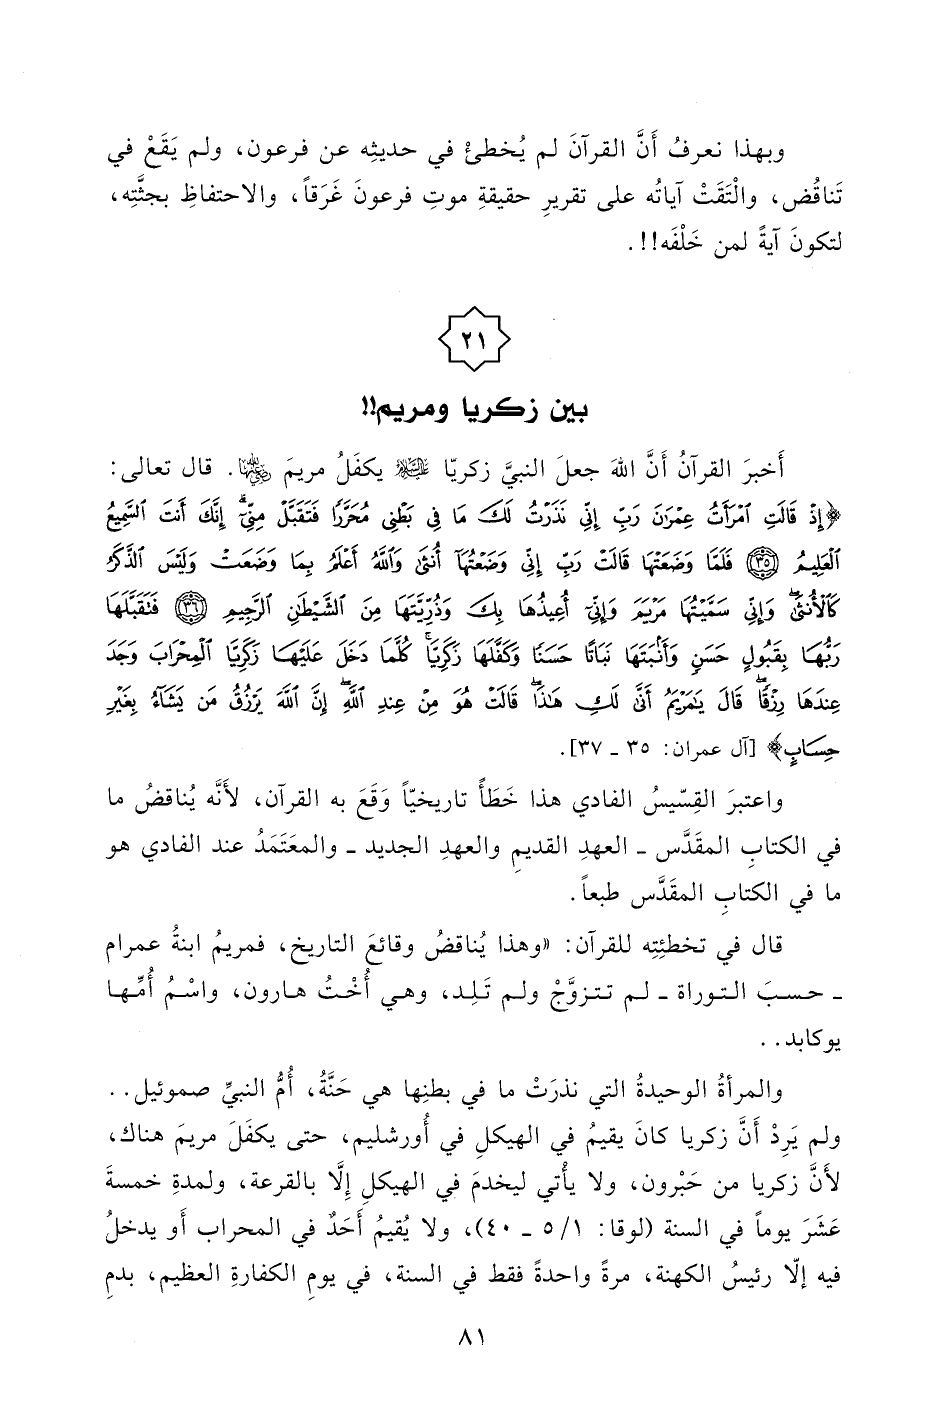 وبهذا نعرفُ أَنَّ القرآنَ لم يُخطئْ في حديثِه عن فرعون، ولم يَقَعْ في
تَناقُض، والْتَقَتْ آياتُه على تقريرِ حقيقةِ موتِ فرعونَ غَرَقاً، والاحتفاظِ بجثَّتِه،
لتكونَ آيةً لمن خَلْفَه!!.
٢١
بين زكريا ومريم!!
أَخبرَ القرآنُ أَنَّ اللهَ جعلَ النبيَّ زكريّا عليه السلام يكفَلُ مريمَ رضي الله عنها. قال تعالى:
﴿إِذْ قَالَتِ ٱمْرَأَتُ عِمْرَٰنَ رَبِّ إِنِّي نَذَرْتُ لَكَ مَا فِي بَطْنِي مُحَرَّرًا فَتَقَبَّلْ مِنِّيٓ ۖ إِنَّكَ أَنتَ ٱلسَّمِيعُ
ٱلْعَلِيمُ ٣٥ فَلَمَّا وَضَعَتْهَا قَالَتْ رَبِّ إِنِّي وَضَعْتُهَآ أُنثَىٰ وَٱللَّهُ أَعْلَمُ بِمَا وَضَعَتْ وَلَيْسَ ٱلذَّكَرُ
كَٱلْأُنثَىٰ ۖ وَإِنِّي سَمَّيْتُهَا مَرْيَمَ وَإِنِّيٓ أُعِيذُهَا بِكَ وَذُرِّيَّتَهَا مِنَ ٱلشَّيْطَٰنِ ٱلرَّجِيمِ ٣٦ فَتَقَبَّلَهَا
رَبُّهَا بِقَبُولٍ حَسَنٍ وَأَنۢبَتَهَا نَبَاتًا حَسَنًا وَكَفَّلَهَا زَكَرِيَّا ۖ كُلَّمَا دَخَلَ عَلَيْهَا زَكَرِيَّا ٱلْمِحْرَابَ وَجَدَ
عِندَهَا رِزْقًا ۖ قَالَ يَٰمَرْيَمُ أَنَّىٰ لَكِ هَٰذَا ۖ قَالَتْ هُوَ مِنْ عِندِ ٱللَّهِ ۖ إِنَّ ٱللَّهَ يَرْزُقُ مَن يَشَآءُ بِغَيْرِ
حِسَابٍ﴾ [آل عمران: ٣٥ - ٣٧].
واعتبرَ القِسّيسُ الفادي هذا خَطَأً تاريخيّاً وَقَعَ به القرآن، لأَنَّه يُناقضُ ما
في الكتابِ المقَدَّس - العهدِ القديمِ والعهدِ الجديد - والمعَتَمَدُ عند الفادي هو
ما في الكتابِ المقَدَّس طبعاً.
قال في تخطئِتِه للقرآن: «وهذا يُناقضُ وقائعَ التاريخ، فمريمُ ابنةُ عمرام
- حسبَ التوراة - لم تتزوَّجْ ولم تَلِد، وهي أُخْتُ هارون، واسْمُ أُمِّها
يوكابد..
والمرأةُ الوحيدةُ التي نذرَتْ ما في بطنِها هي حَنَّةُ، أُمُّ النبيِّ صموئيل..
ولم يَرِدْ أَنَّ زكريا كانَ يقيمُ في الهيكلِ في أُورشليم، حتى يكفَلَ مريمَ هناك،
لأَنَّ زكريا من حَبْرون، ولا يأْتي ليخدمَ في الهيكلِ إِلَّا بالقرعة، ولمدةِ خمسةَ
عَشَرَ يوماً في السنة (لوقا: ١/ ٥ - ٤٠)، ولا يُقيمُ أَحَدٌ في المحراب أَو يدخلُ
فيه إِلّا رئيسُ الكهنة، مرةً واحدةً فقط في السنة، في يومِ الكفارةِ العظيم، بدمِ
٨١